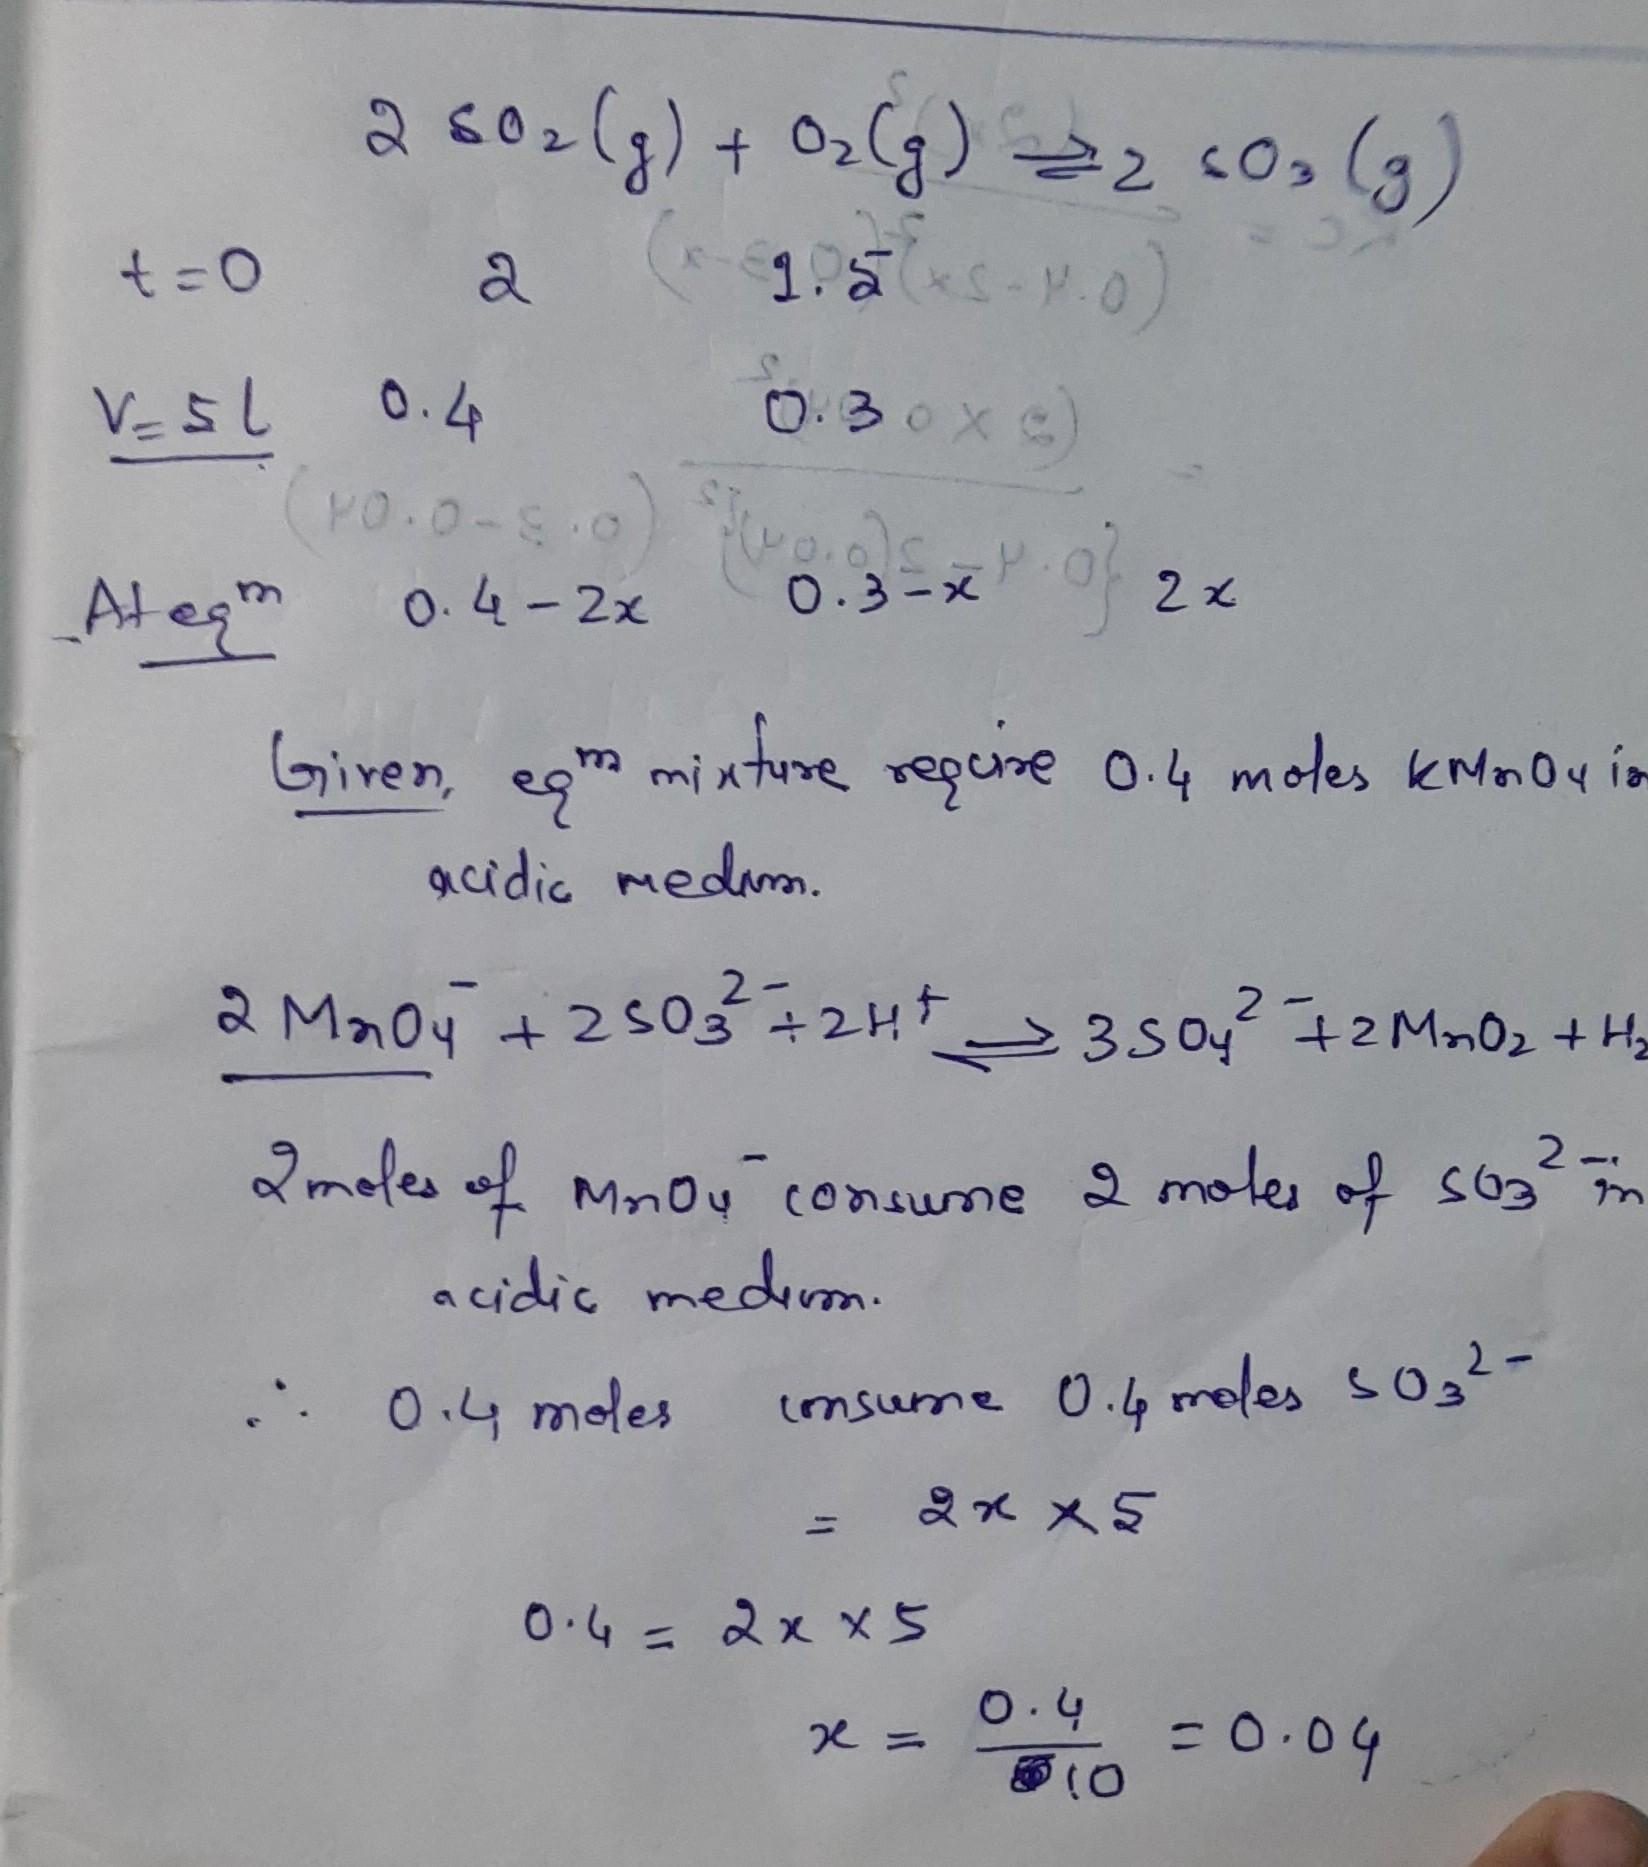 2 SO₂(g) + O₂(g) ⇌ 2 SO₃(g)
t=0 2 1.5
V=5l 0.4 0.3
At eqᵐ 0.4-2x 0.3-x 2x
Given, eqᵐ mixture require 0.4 moles KMnO₄ in
acidic medium.
2MnO₄⁻ + 2SO₃²⁻ + 2H⁺ ⇌ 3SO₄²⁻ + 2MnO₂ + H₂
2 moles of MnO₄⁻ consume 2 moles of SO₃²⁻ in
acidic medium.
∴ 0.4 moles consume 0.4 moles SO₃²⁻
= 2x × 5
0.4 = 2x × 5
x = 0.4/10 = 0.04